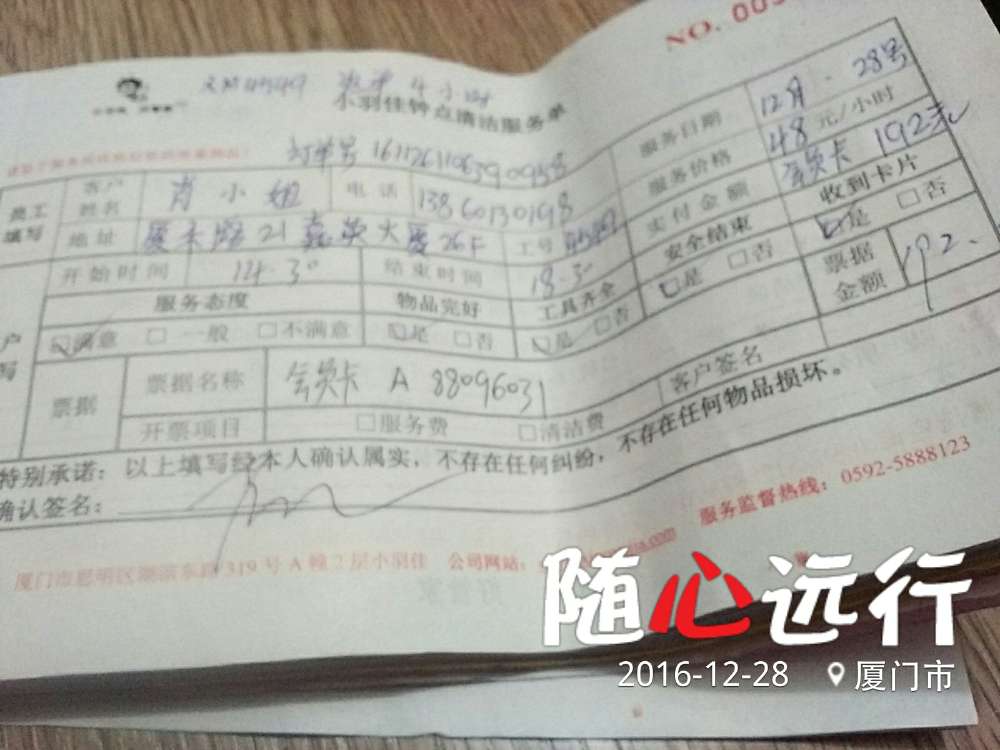 NO. 005
派单 4小时
小羽佳钟点清洁服务单
订单号
服务日期 12月·28号
员工填写 客户姓名 肖小姐 电话 13860130198 服务价格 48元/小时
地址 21 大厦26F 工号 实付金额 会员卡192元
开始时间 14.30 结束时间 18.30 安全结束 收到卡片
服务态度 物品完好 工具齐全 □是 □否 □是 □否
□满意 □一般 □不满意 □是 □否 □是 □否 票据金额 192.
票据 票据名称 会员卡 A 88096031 客户签名
开票项目 □服务费 □清洁费
特别承诺：以上填写经本人确认属实，不存在任何纠纷，不存在任何物品损坏。
确认签名：
厦门市思明区湖滨东路319号A幢2层小羽佳 公司网站： 服务监督热线：0592-5888123
随心远行
2016-12-28 厦门市